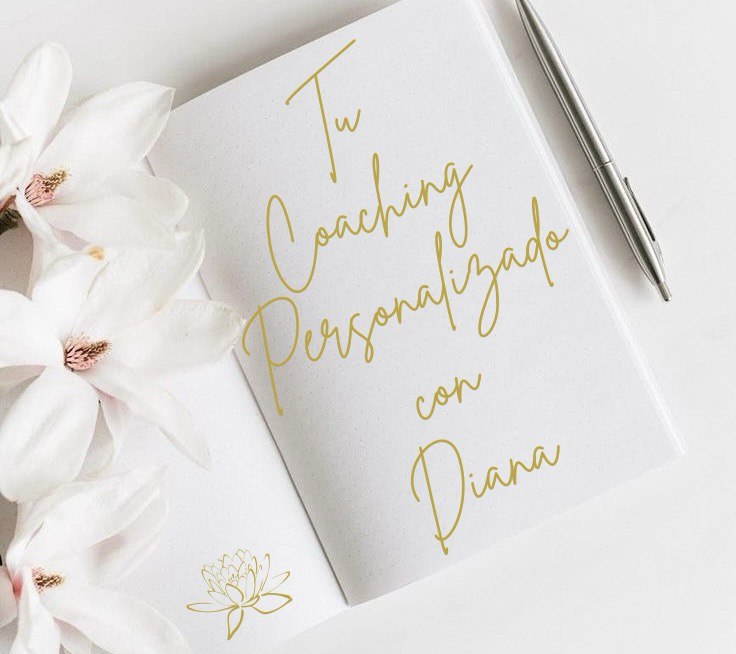 Tu
Coaching
Personalizado
con
Diana